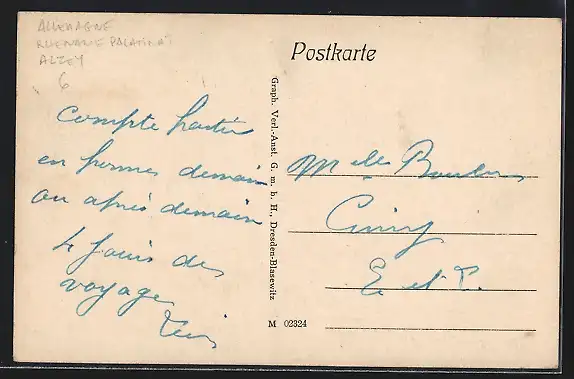 ALLEMAGNE
RHENANIE PALATINAT
ALZEY
6
Postkarte
compte partir
en permes demain
ou après demain
4 jours de
voyage
Graph. Verl.-Anst. G. m. b. H., Dresden-Blasewitz
M 02324
M de
E et L.